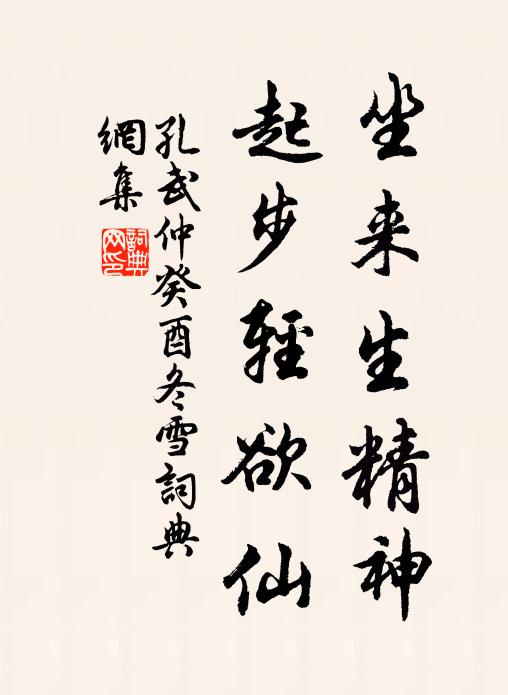 坐来生精神
起步轻欲仙
孔武仲癸酉冬雪詞典
網集
詞典
网印